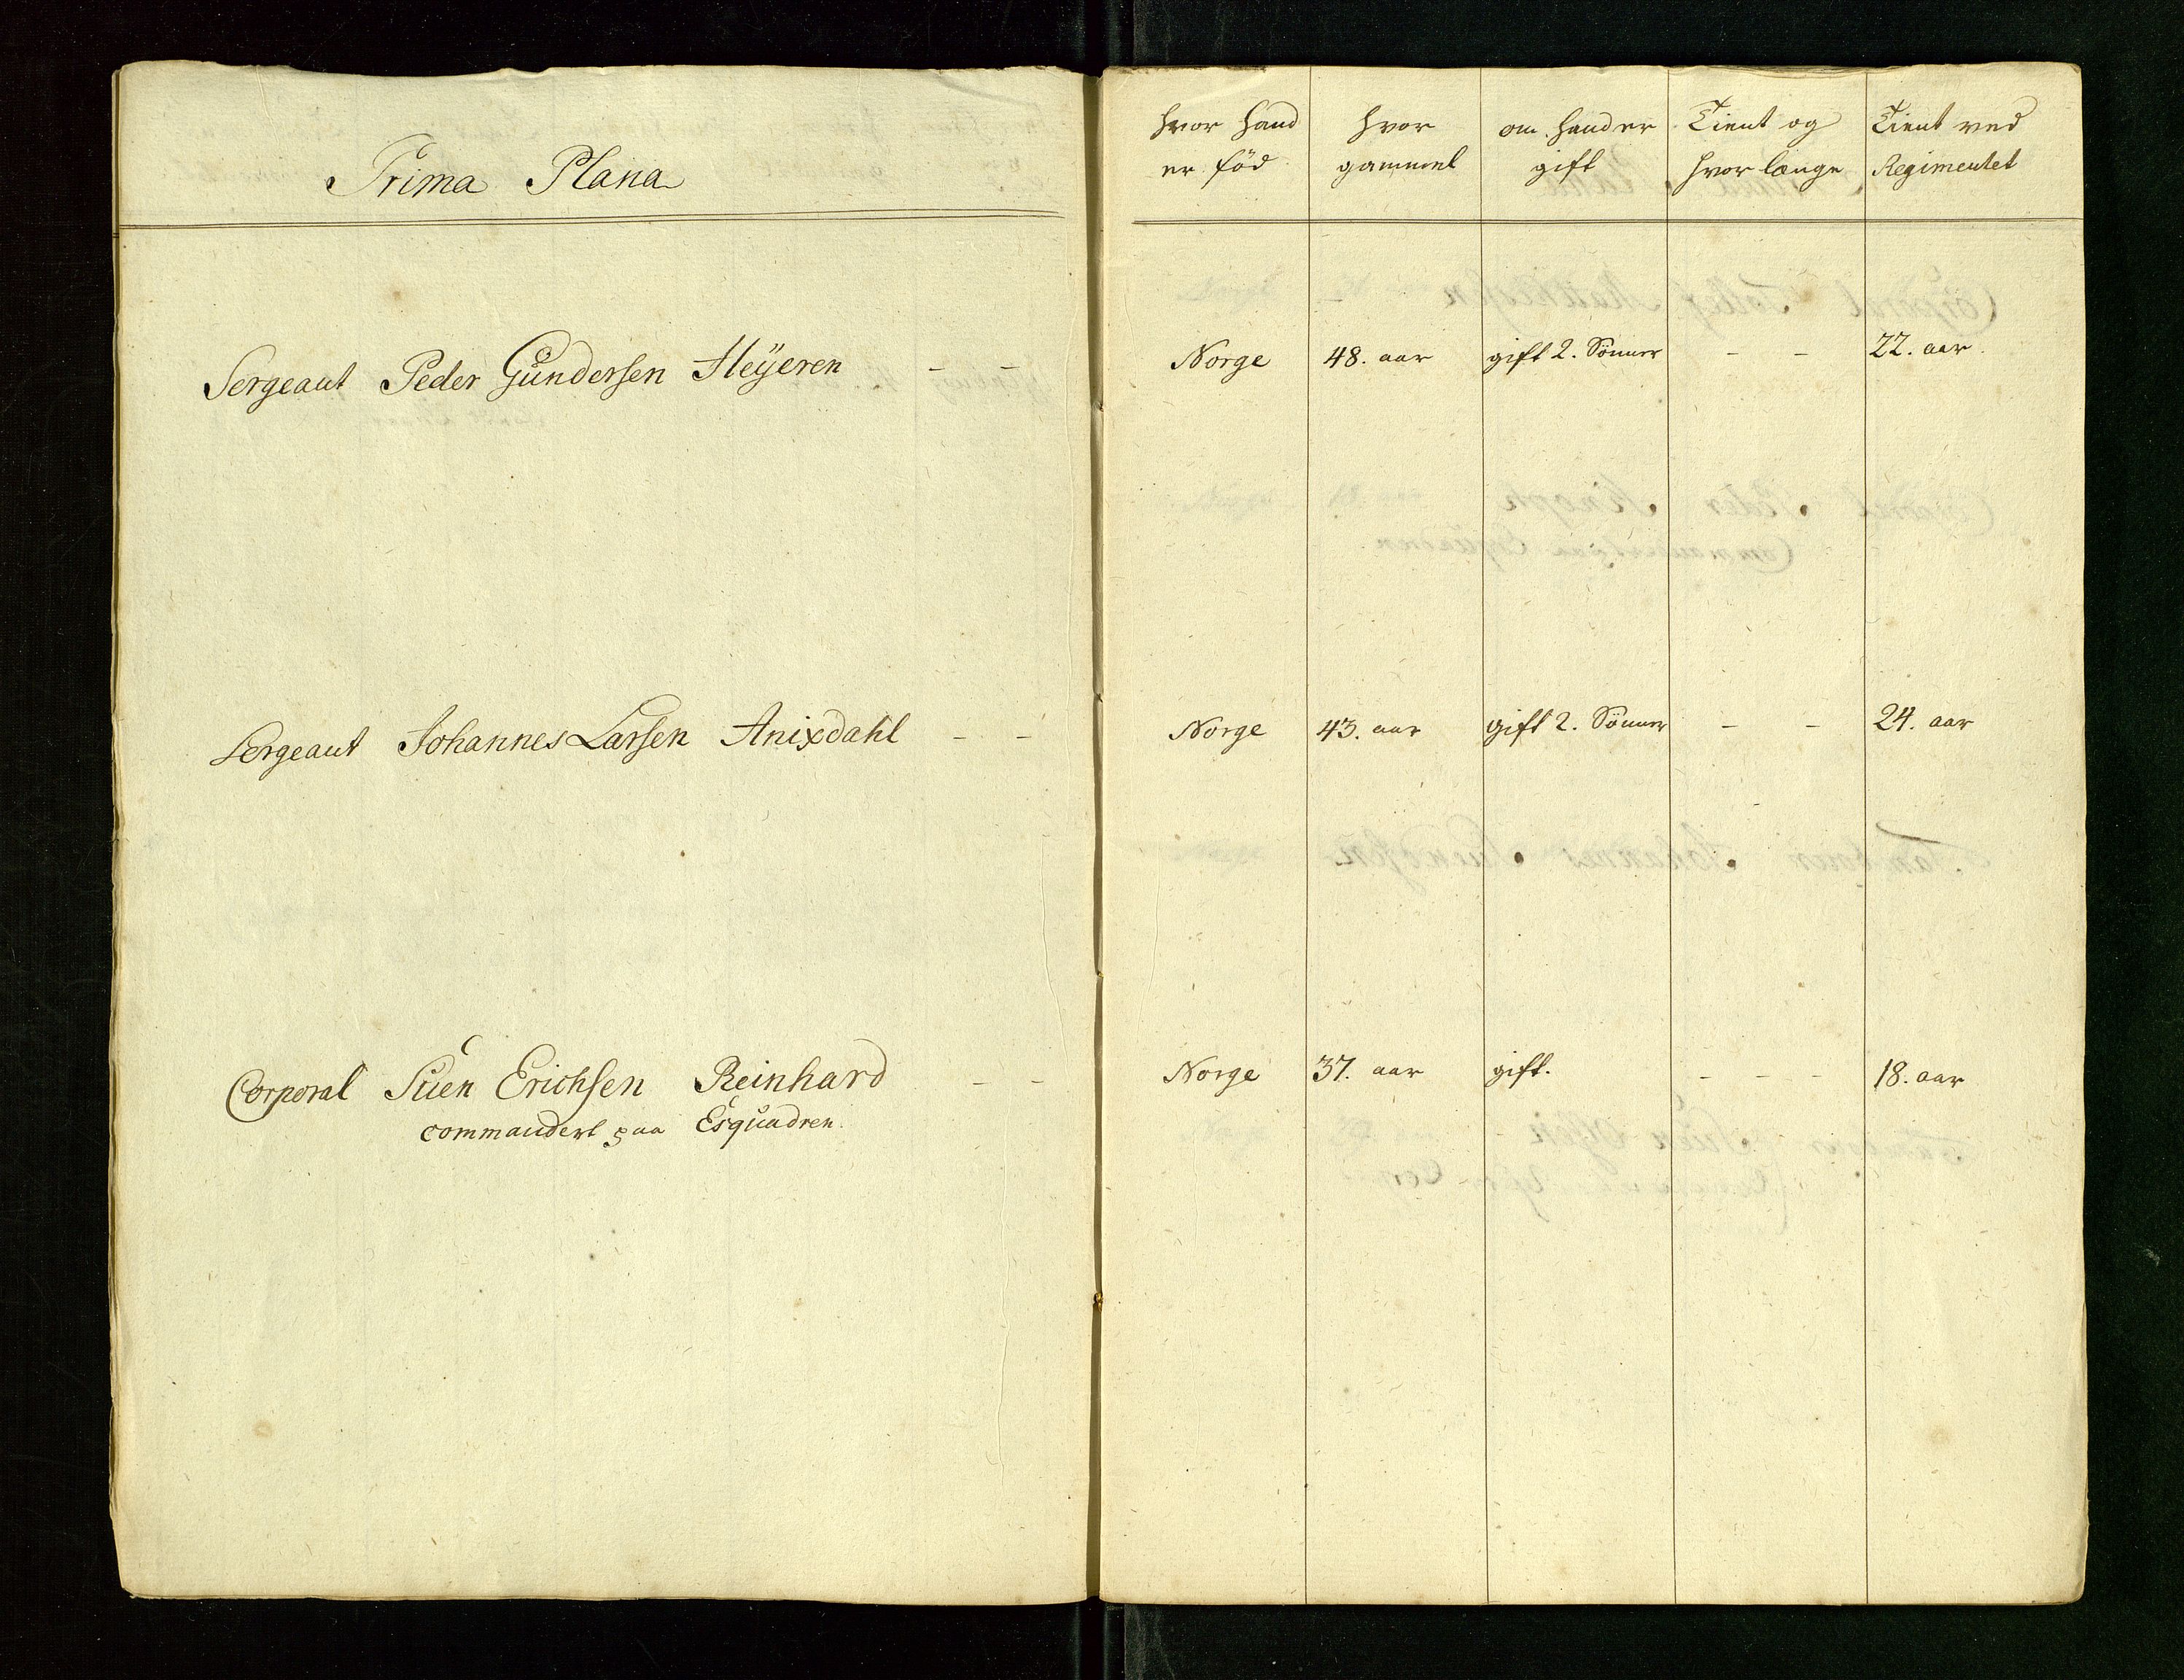 Prima Plana
hvor hand
er föd
hvor
gammel
om hand er
gift
Tient og
hvor længe
Tient ved
Regimentet
Sergeant Peder Gundersen Heÿeren - - Norge 48. aar gift 2. Sönner - - 22. aar.
Sergeant Johannes Larsen Anixdahl - - Norge 43. aar gift 2. Sönner - - 24. aar
Corporal Suen Erichsen Reinhard - - Norge 37. aar gift. - - - 18. aar
commandert paa Esquadren.